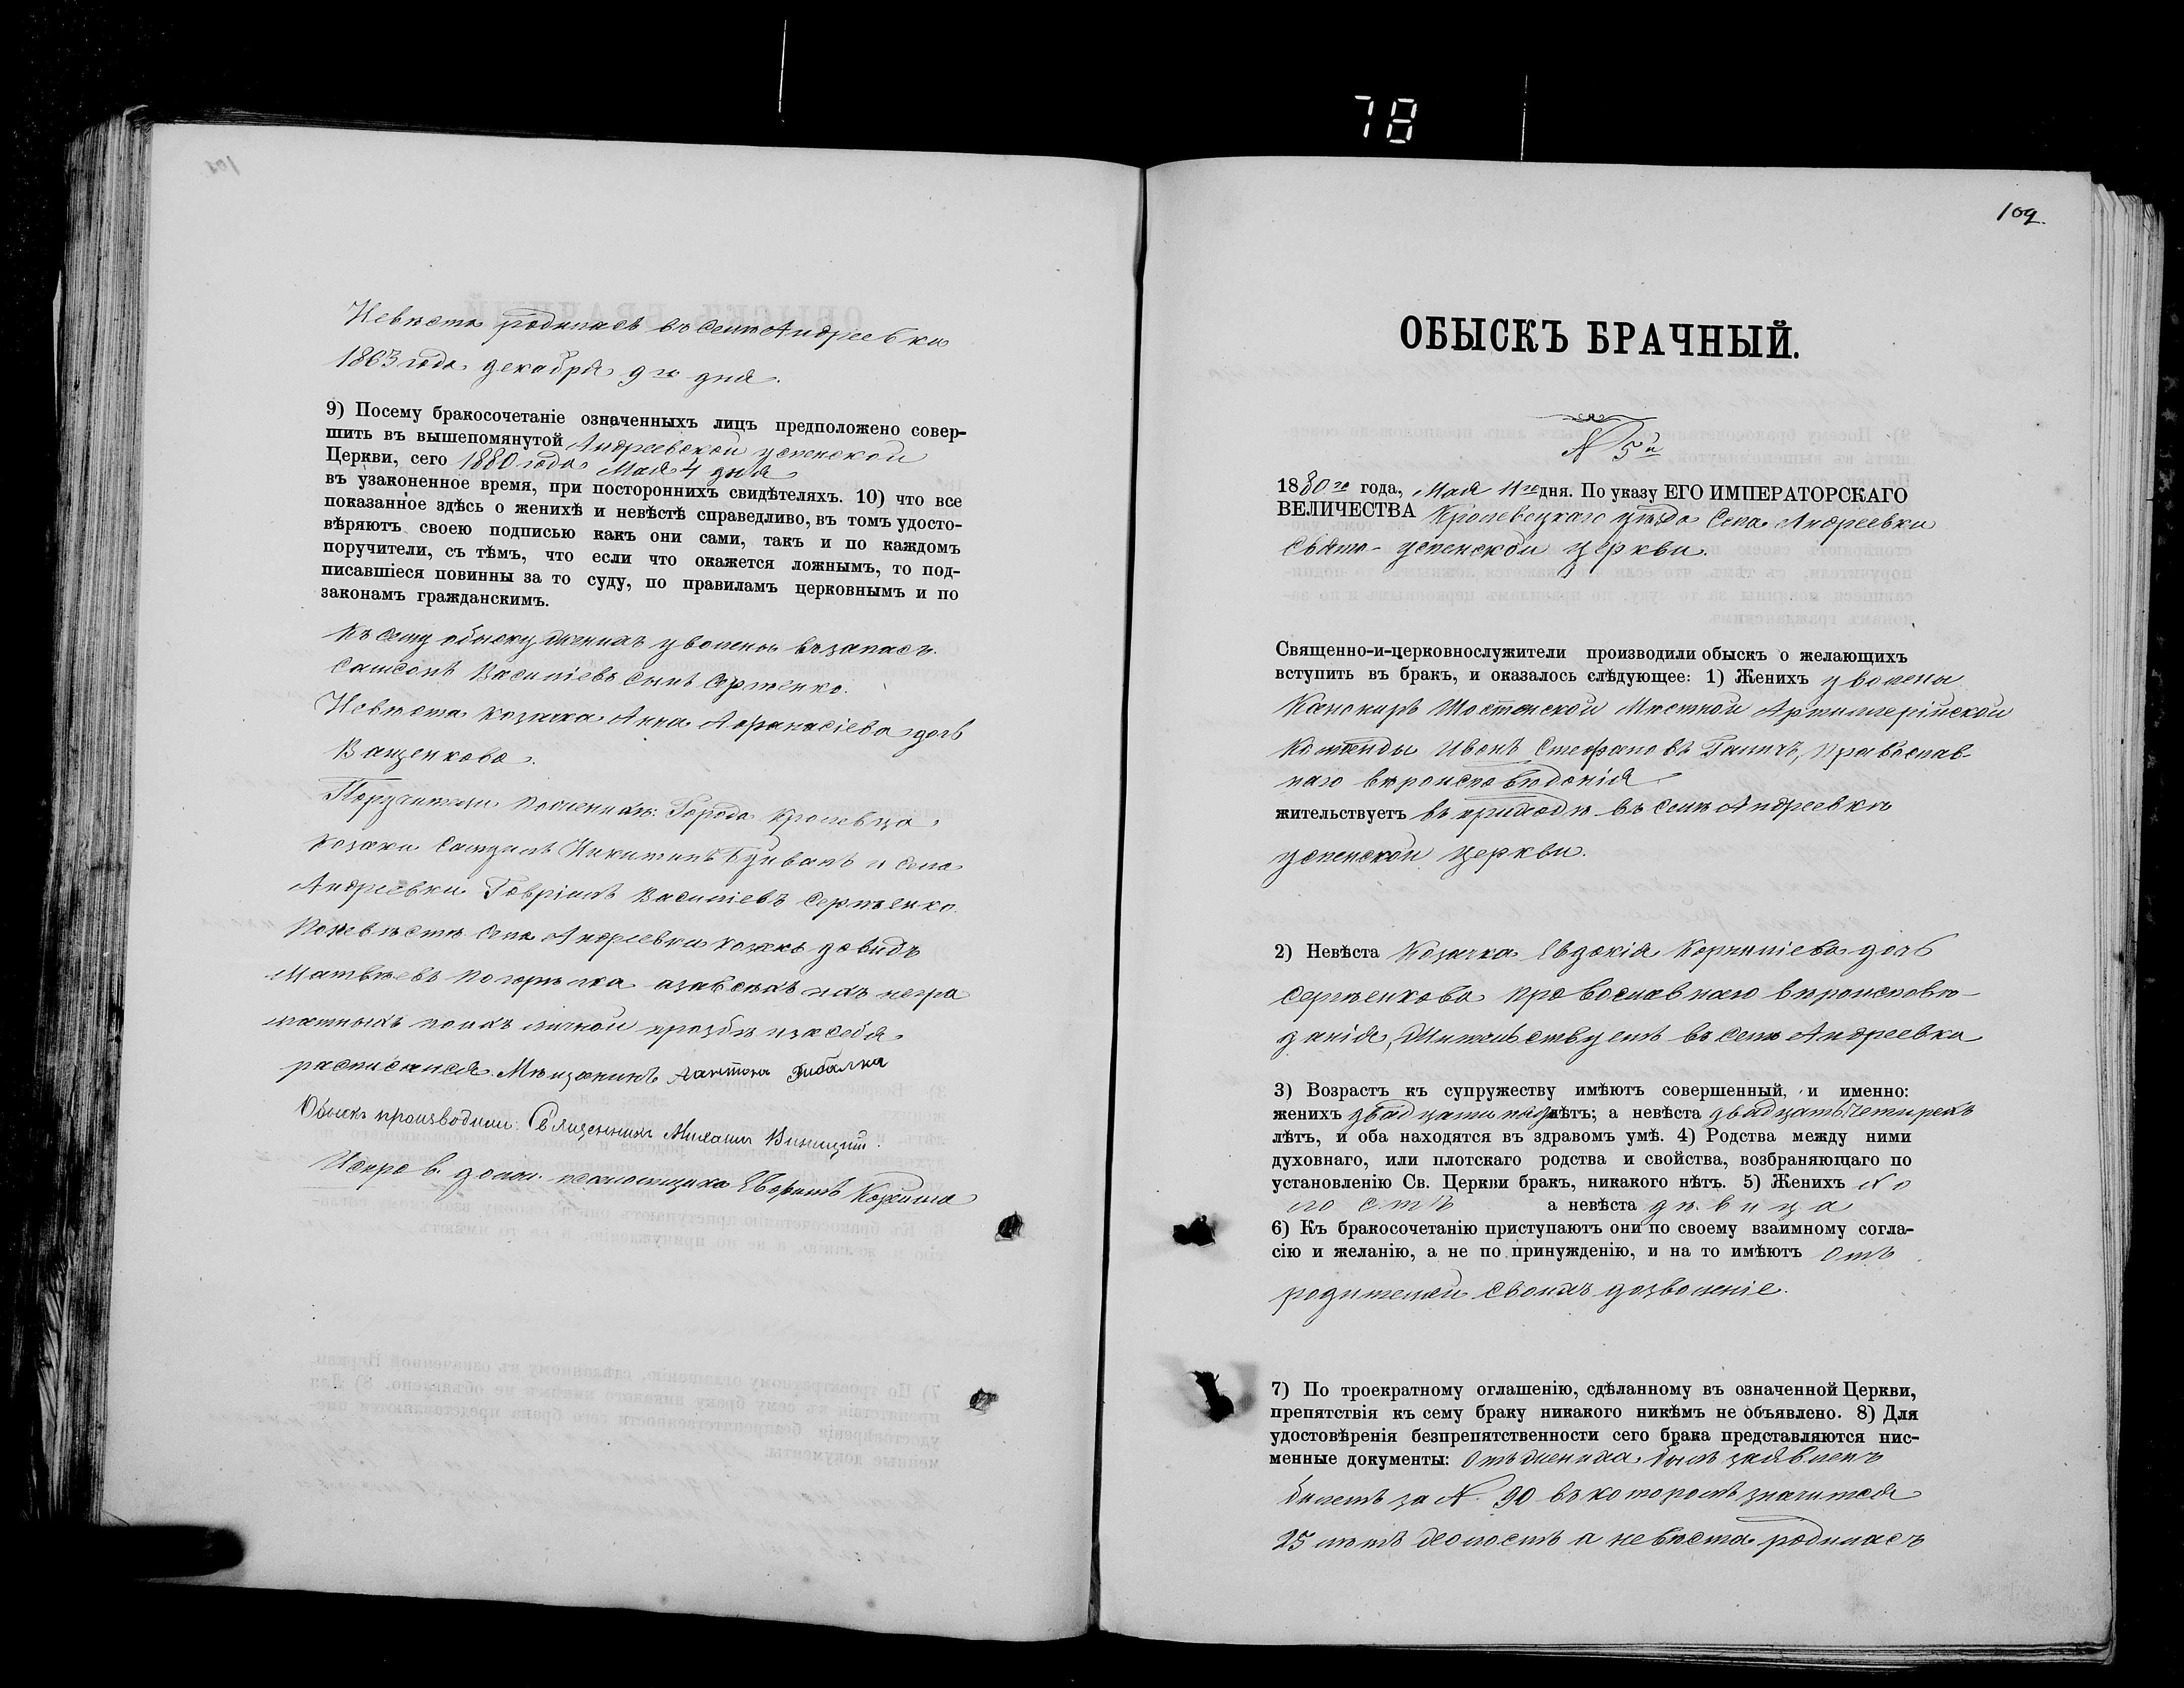 78
Невѣста родилась въ селѣ Андреевки
1863 года декабря 9го дня.
9) Посему бракосочетаніе означенныхъ лицъ предположено совер-
шить въ вышепомянутой Андреевской успенской
Церкви, сего 1880 года Мая 4 дня
въ узаконенное время, при постороннихъ свидѣтеляхъ. 10) что все
показанное здѣсь о женихѣ и невѣстѣ справедливо, въ томъ удосто-
вѣряютъ своею подписью какъ они сами, такъ и по каждомъ
поручители, съ тѣмъ, что если что окажется ложнымъ, то под-
писавшіеся повинны за то суду, по правиламъ церковнымъ и по
законамъ гражданскимъ.
Къ сему обыску женихъ уволены въ запасъ
Самсонъ Василіевъ сынъ Сергѣенко.
Невѣста козачка Анна Афанасіева дочь
Ващенкова.
Поручители по женихѣ: Города Кролевца
козаки Никитинъ и села
Андреевки Гавріилъ Василіевъ Сергѣенко.
По невѣстѣ села Андреевки козакъ Давидъ
Матвѣевъ а за всѣхъ ихъ негра
мотныхъ по ихъ личной прозбѣ и за себя
расписался Мѣщанинъ
Обыскъ производили: Священникъ Михаилъ
псаломщика
109
ОБЫСКЪ БРАЧНЫЙ.
№ 5й
1880го года, Мая 11го дня. По указу ЕГО ИМПЕРАТОРСКАГО
ВЕЛИЧЕСТВА Кролевецкаго уѣзда Села Андреевки
Свято-успенской церкви.
Священно-и-церковнослужители производили обыскъ о желающихъ
вступить въ бракъ, и оказалось слѣдующее: 1) Женихъ уволены
Канониръ Шостенской Мѣстной Артиллерійской
Команды Иванъ Стефановъ Ганичъ, православ-
наго вѣроисповѣданія
жительствуетъ въ приходѣ въ селѣ Андреевки
успенской церкви.
2) Невѣста Козачка Евдокія Корниліева дочь
Сергѣенкова православнаго вѣроисповѣ-
данія, Жительствуетъ въ селѣ Андреевки
3) Возрастъ къ супружеству имѣютъ совершенный, и именно:
женихъ двадцати пяти лѣтъ; а невѣста двадцать четирехъ
лѣтъ, и оба находятся въ здравомъ умѣ. 4) Родства между ними
духовнаго, или плотскаго родства и свойства, возбраняющаго по
установленію Св. Церкви бракъ, никакого нѣтъ. 5) Женихъ хо
лостъ а невѣста дѣвица
6) Къ бракосочетанію приступаютъ они по своему взаимному согла-
сію и желанію, а не по принужденію, и на то имѣютъ отъ
родителей своихъ дозволеніе.
7) По троекратному оглашенію, сдѣланному въ означенной Церкви,
препятствія къ сему браку никакого никѣмъ не объявлено. 8) Для
удостовѣренія безпрепятственности сего брака представляются пис-
менные документы: Отъ жениха былъ заявленъ
билетъ за N. 90 въ которомъ значится
25 лѣтъ холостъ а невѣста родилась